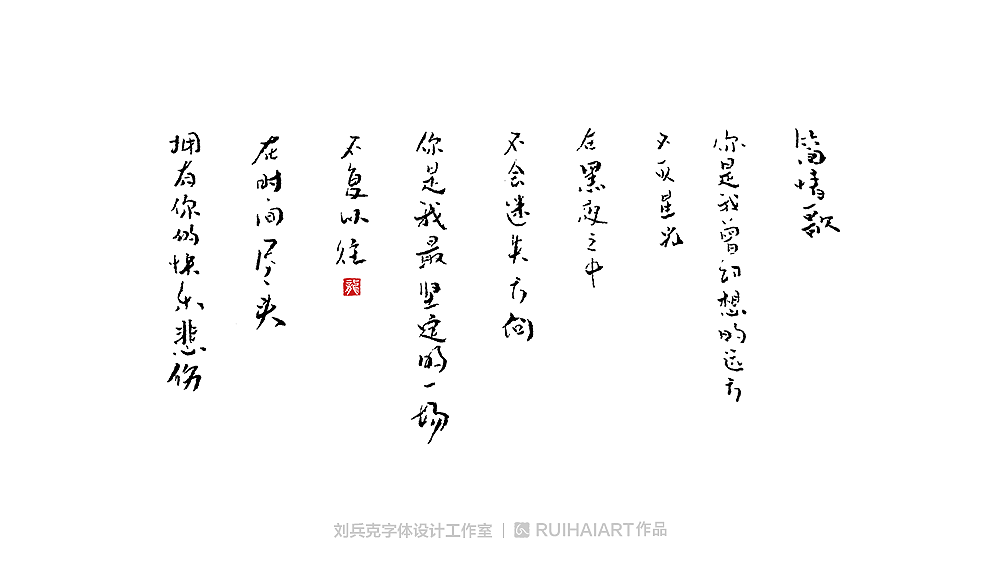 简情歌
你是我曾幻想的远方
不灭星光
在黑夜之中
不会迷失方向
你是我最坚定的一场
不复以往
在时间尽头
拥有你的快乐悲伤
刘兵克字体设计工作室 | RUIHAIART作品